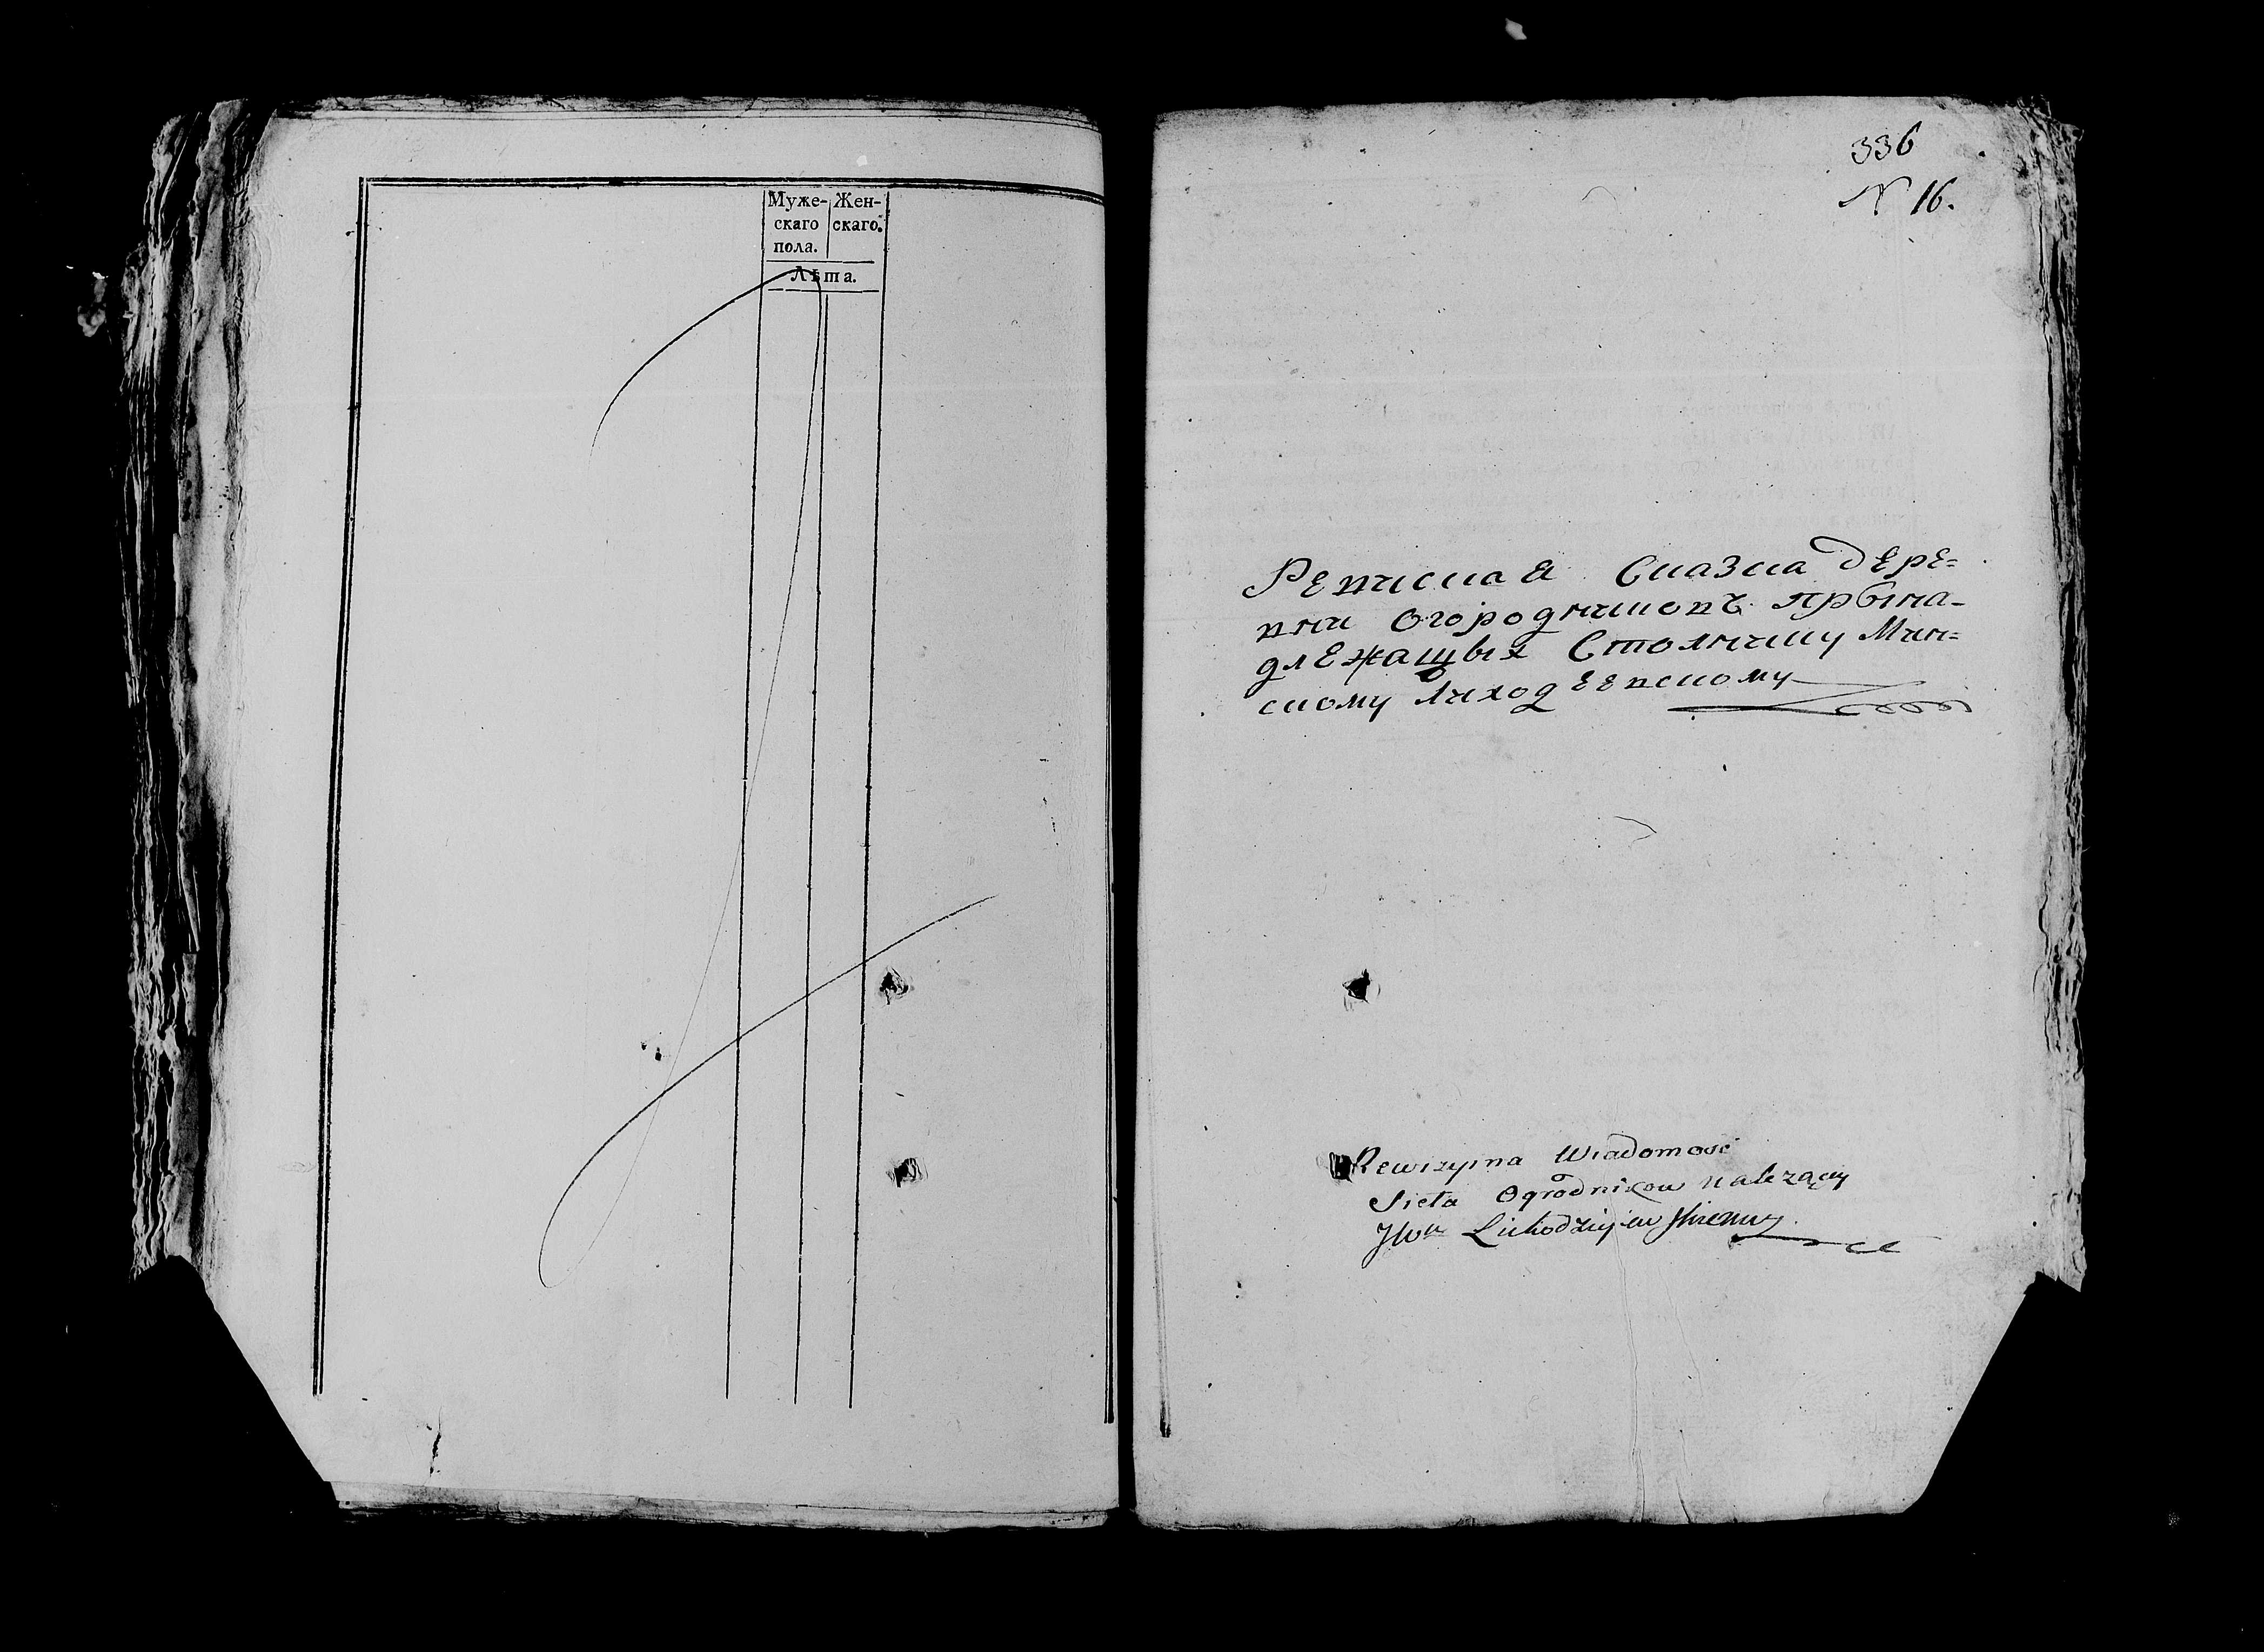 Муже- Жен-
скаго скаго.
пола.
Лѣта.
336
N 16.
Ревиская Сказка дере=
вни Огородниковъ прына-
длежащых Столнику Мин=
скому Лиходеевскому
Rewizyina Wiadomość
Sieła Ogrodnikow należący
JWu Lichodziejewskiemu